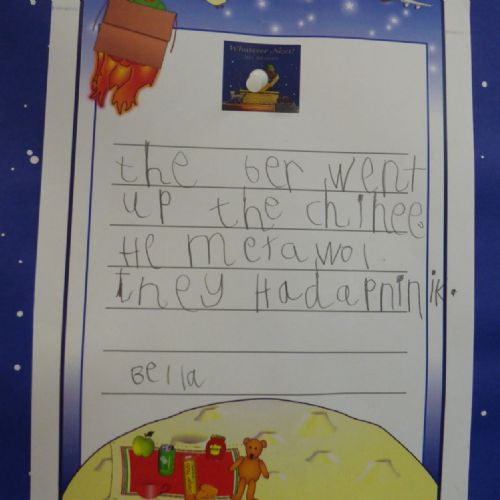 Whatever Next!
the ber went
up the chihee.
He metawol.
they Hadapninik.
Bella